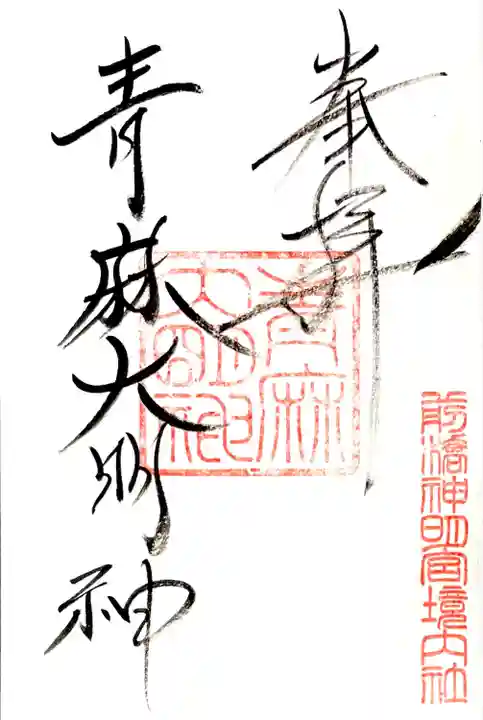 奉拝
前橋神明宮境内社
青麻大明神
青麻大明神